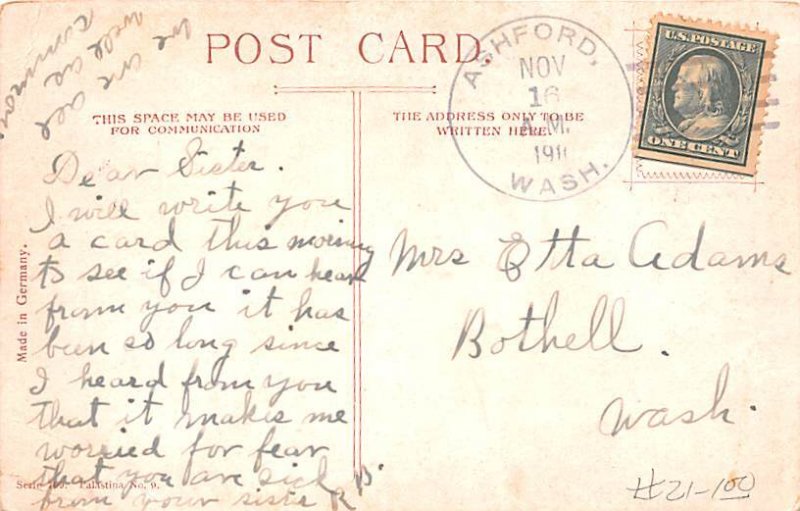 POST CARD.
ASHFORD,
NOV
16
A.M.
191
WASH.
U.S. POSTAGE
ONE CENT
THIS SPACE MAY BE USED
FOR COMMUNICATION
THE ADDRESS ONLY TO BE
WRITTEN HERE
we are all
well as
common
Dear Sister.
I will write you
a card this morning
to see if I can hear
from you it has
been so long since
I heard from you
that it makes me
worried for fear
that you are sick
from your sister R B.
Mrs Etta Adams
Bothell.
Wash.
Made in Germany.
Serie Palastina No. 9.
#21-100